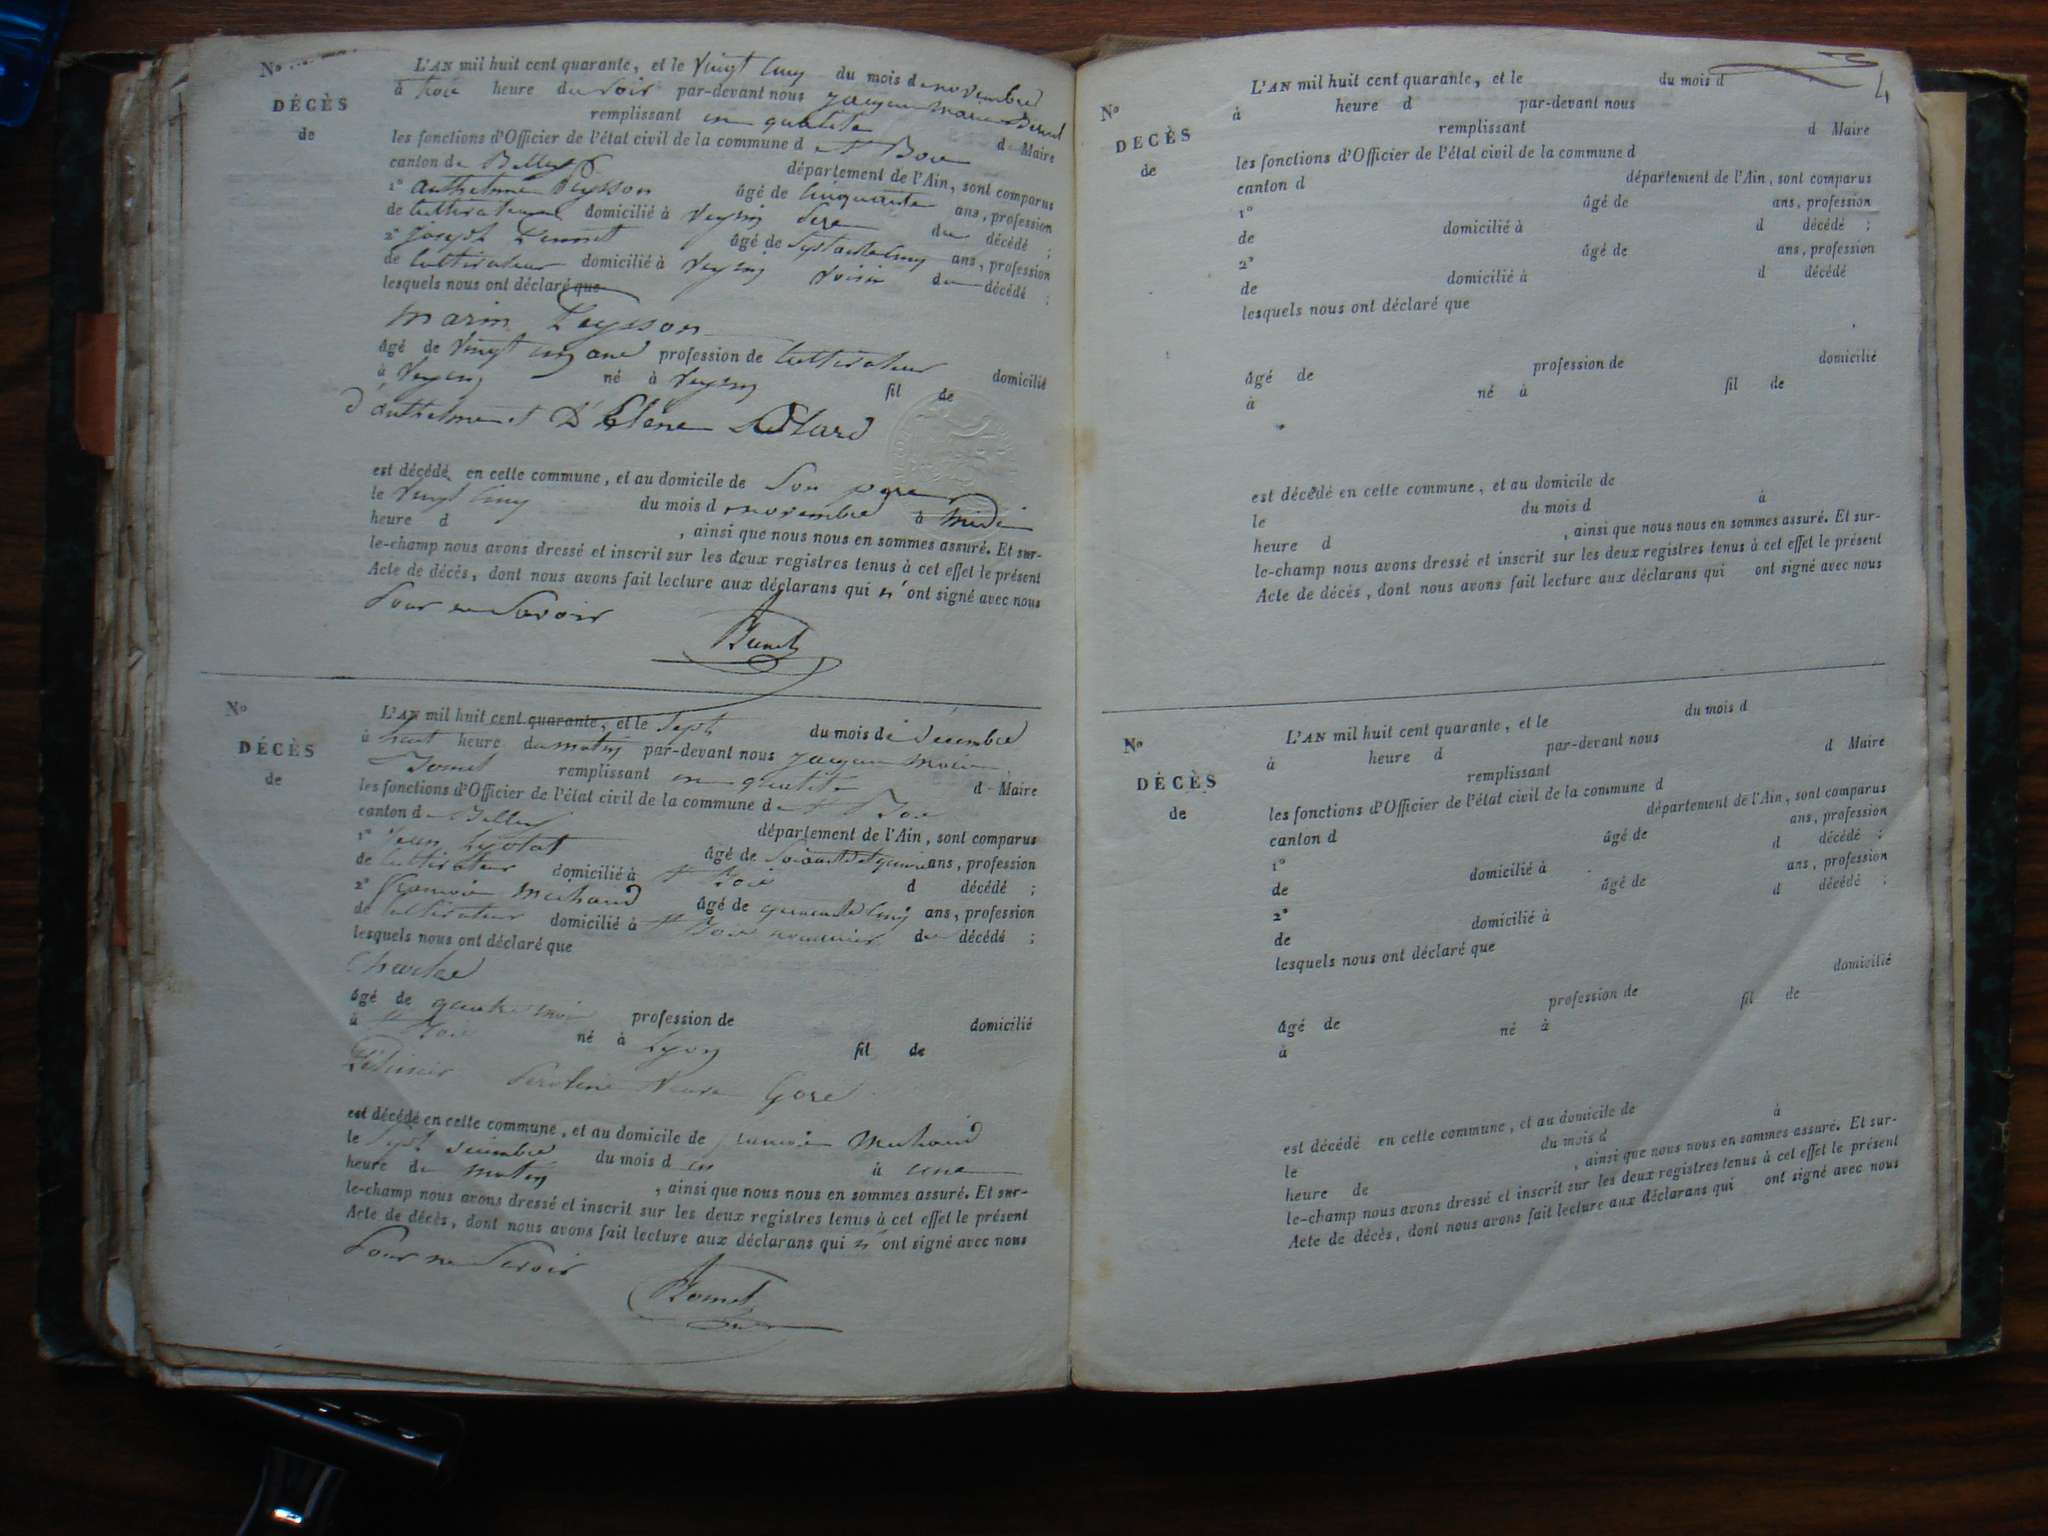 No
DÉCÈS
de
L'AN mil huit cent quarante, et le vingt cinq du mois de novembre
à trois heure du soir par-devant nous jacques marie
remplissant en qualité d Maire
les fonctions d'Officier de l'état civil de la commune d
canton de Belley département de l'Ain, sont comparus
1° anthelme Peysson âgé de cinquante ans, profession
de cultivateur domicilié à du décédé ;
2° joseph âgé de ans, profession
de cultivateur domicilié à voisin du décédé ;
lesquels nous ont déclaré que
marin Peysson
âgé de vingt cinq ans profession de cultivateur domicilié
à né à fil de
d'anthelme et D'Elène
est décédé en cette commune, et au domicile de son père
le vingt cinq du mois d novembre à midi
heure d , ainsi que nous nous en sommes assuré. Et sur-
le-champ nous avons dressé et inscrit sur les deux registres tenus à cet effet le présent
Acte de décès, dont nous avons fait lecture aux déclarans qui n'ont signé avec nous
Pour ne Savoir
No
DÉCÈS
de
L'AN mil huit cent quarante, et le sept du mois de décembre
à huit heure du matin par-devant nous jacques marie
remplissant en qualité d Maire
les fonctions d'Officier de l'état civil de la commune d
canton d Belley département de l'Ain, sont comparus
1° jean âgé de ans, profession
de cultivateur domicilié à d décédé ;
2° françois âgé de quarante cinq ans, profession
de cultivateur domicilié à du décédé ;
lesquels nous ont déclaré que
Charles
âgé de quatre mois profession de domicilié
à né à Lyon fil de
est décédé en cette commune, et au domicile de françois
le sept décembre du mois d à une
heure du matin , ainsi que nous nous en sommes assuré. Et sur-
le-champ nous avons dressé et inscrit sur les deux registres tenus à cet effet le présent
Acte de décès, dont nous avons fait lecture aux déclarans qui n'ont signé avec nous
Pour ne Savoir
4
No
DÉCÈS
de
L'AN mil huit cent quarante, et le du mois d
à heure d par-devant nous
remplissant d Maire
les fonctions d'Officier de l'état civil de la commune d
canton d département de l'Ain, sont comparus
1° âgé de ans, profession
de domicilié à d décédé ;
2° âgé de ans, profession
de domicilié à d décédé
lesquels nous ont déclaré que
âgé de profession de domicilié
à né à fil de
est décédé en cette commune, et au domicile de
le du mois d à
heure d , ainsi que nous nous en sommes assuré. Et sur-
le-champ nous avons dressé et inscrit sur les deux registres tenus à cet effet le présent
Acte de décès, dont nous avons fait lecture aux déclarans qui ont signé avec nous
No
DÉCÈS
de
L'AN mil huit cent quarante, et le du mois d
à heure d par-devant nous
remplissant d Maire
les fonctions d'Officier de l'état civil de la commune d
canton d département de l'Ain, sont comparus
1° âgé de ans, profession
de domicilié à d décédé ;
2° âgé de ans, profession
de domicilié à d décédé ;
lesquels nous ont déclaré que
âgé de profession de domicilié
à né à fil de
est décédé en cette commune, et au domicile de
le du mois d à
heure de , ainsi que nous nous en sommes assuré. Et sur-
le-champ nous avons dressé et inscrit sur les deux registres tenus à cet effet le présent
Acte de décès, dont nous avons fait lecture aux déclarans qui ont signé avec nous